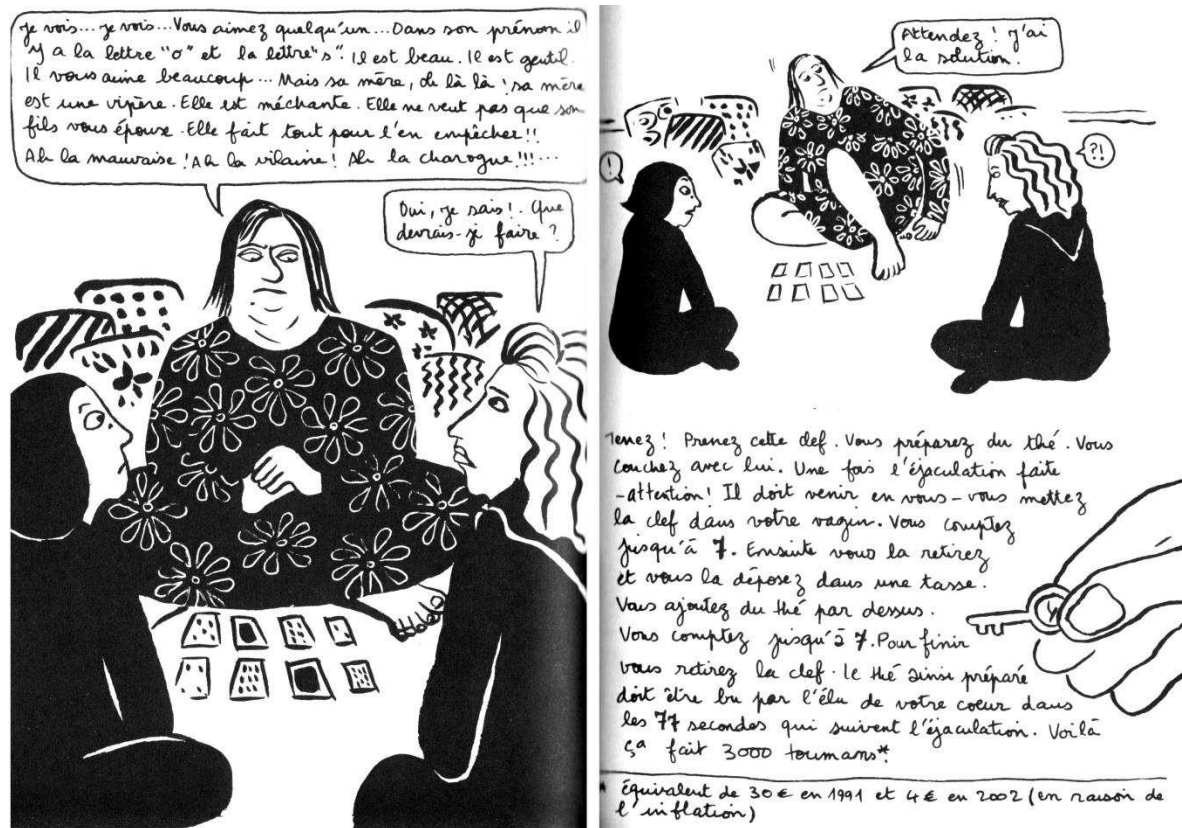 Je vois... Je vois... Vous aimez quelqu'un... Dans son prénom il
y a la lettre "o" et la lettre "s". Il est beau. Il est gentil.
Il vous aime beaucoup... Mais sa mère, oh là là ! sa mère
est une vipère. Elle est méchante. Elle ne veut pas que son
fils vous épouse. Elle fait tout pour l'en empêcher!!
Ah la mauvaise! Ah la vilaine! Ah la charogne!!!...
Oui, je sais!. Que
devrais-je faire ?
Attendez ! J'ai
la solution.
!
?!
Tenez ! Prenez cette clef. Vous préparez du thé. Vous
couchez avec lui. Une fois l'éjaculation faite
-attention! Il doit venir en vous - vous mettez
la clef dans votre vagin. Vous comptez
jusqu'à 7. Ensuite vous la retirez
et vous la déposez dans une tasse.
Vous ajoutez du thé par dessus.
Vous comptez jusqu'à 7. Pour finir
vous retirez la clef. Le thé ainsi préparé
doit être bu par l'élu de votre coeur dans
les 77 secondes qui suivent l'éjaculation. Voilà
ça fait 3000 toumans*.
* équivalent de 30 € en 1991 et 4 € en 2002 (en raison de
l'inflation)